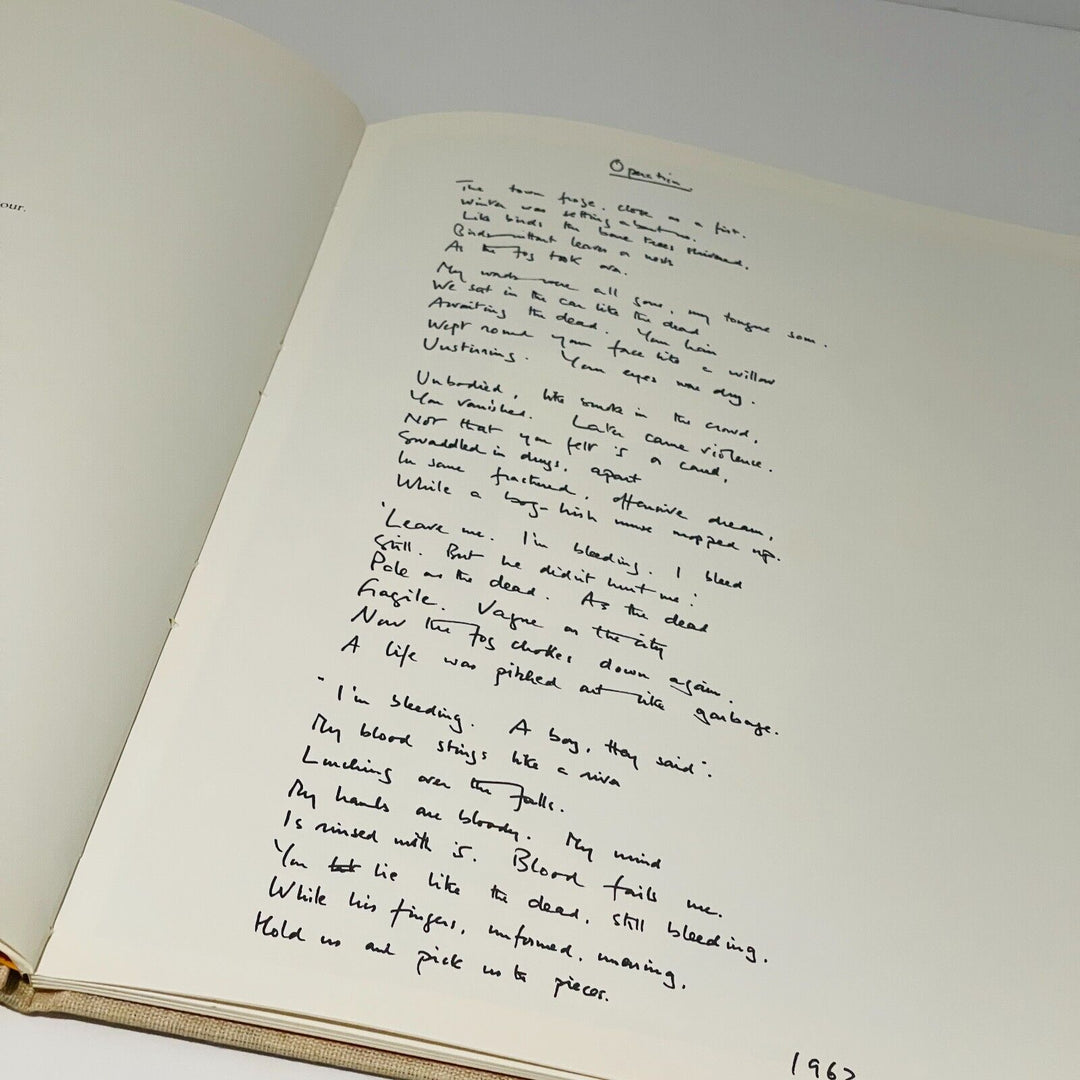 our.
Operation
The town froze, close as a fist.
Winter was setting about us.
Like birds the bone trees shivered,
Birds without leaves or nests
As the fog took over.
My words were all gone, my tongue sour.
We sat in the car like the dead
Awaiting the dead. Your hair
Wept round your face like a willow
Unstirring. Your eyes were dry.
Unbodied, like smoke in the crowd,
You vanished. Later came violence.
Not that you felt it or cared,
Swaddled in drugs, apart
In some fractured, offensive dream,
While a bog-Irish nurse mopped up.
'Leave me. I'm bleeding. I bleed
Still. But he didn't hurt me.'
Pale as the dead. As the dead
Fragile. Vague as the city
Now the fog chokes down again.
A life was pitched out like garbage.
"I'm bleeding. A boy, they said".
My blood stings like a river
Lurching over the falls.
My hands are bloody. My mind
Is rinsed with it. Blood fails me.
You lie like the dead, still bleeding,
While his fingers, unformed, unerring,
Hold us and pick us to pieces.
1962